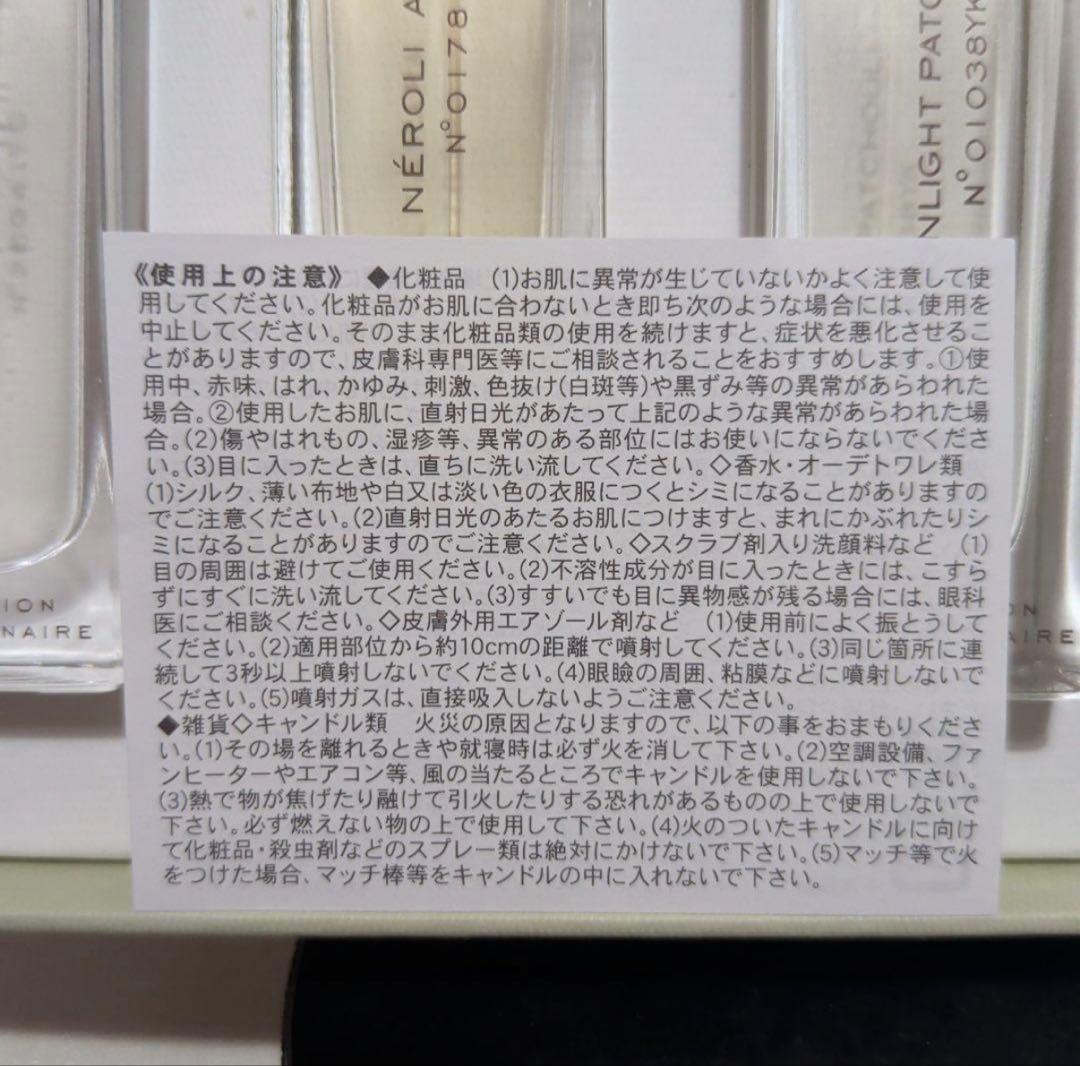 NÉROLI A
N°0178
NLIGHT PATC
N°01038YK
PATCHOULI
《使用上の注意》 ◆化粧品 (1)お肌に異常が生じていないかよく注意して使
用してください。化粧品がお肌に合わないとき即ち次のような場合には、使用を
中止してください。そのまま化粧品類の使用を続けますと、症状を悪化させるこ
とがありますので、皮膚科専門医等にご相談されることをおすすめします。①使
用中、赤味、はれ、かゆみ、刺激、色抜け(白斑等)や黒ずみ等の異常があらわれた
場合。②使用したお肌に、直射日光があたって上記のような異常があらわれた場
合。(2)傷やはれもの、湿疹等、異常のある部位にはお使いにならないでくださ
い。(3)目に入ったときは、直ちに洗い流してください。◇香水・オーデトワレ類
(1)シルク、薄い布地や白又は淡い色の衣服につくとシミになることがありますの
でご注意ください。(2)直射日光のあたるお肌につけますと、まれにかぶれたりシ
ミになることがありますのでご注意ください。◇スクラブ剤入り洗顔料など (1)
目の周囲は避けてご使用ください。(2)不溶性成分が目に入ったときには、こすら
ずにすぐに洗い流してください。(3)すすいでも目に異物感が残る場合には、眼科
医にご相談ください。◇皮膚外用エアゾール剤など (1)使用前によく振とうして
ください。(2)適用部位から約10cmの距離で噴射してください。(3)同じ箇所に連
続して3秒以上噴射しないでください。(4)眼瞼の周囲、粘膜などに噴射しないで
ください。(5)噴射ガスは、直接吸入しないようご注意ください。
◆雑貨◇キャンドル類 火災の原因となりますので、以下の事をおまもりくださ
い。(1)その場を離れるときや就寝時は必ず火を消して下さい。(2)空調設備、ファ
ンヒーターやエアコン等、風の当たるところでキャンドルを使用しないで下さい。
(3)熱で物が焦げたり融けて引火したりする恐れがあるものの上で使用しないで
下さい。必ず燃えない物の上で使用して下さい。(4)火のついたキャンドルに向け
て化粧品・殺虫剤などのスプレー類は絶対にかけないで下さい。(5)マッチ等で火
をつけた場合、マッチ棒等をキャンドルの中に入れないで下さい。
TION
NAIRE
ON
AIRE